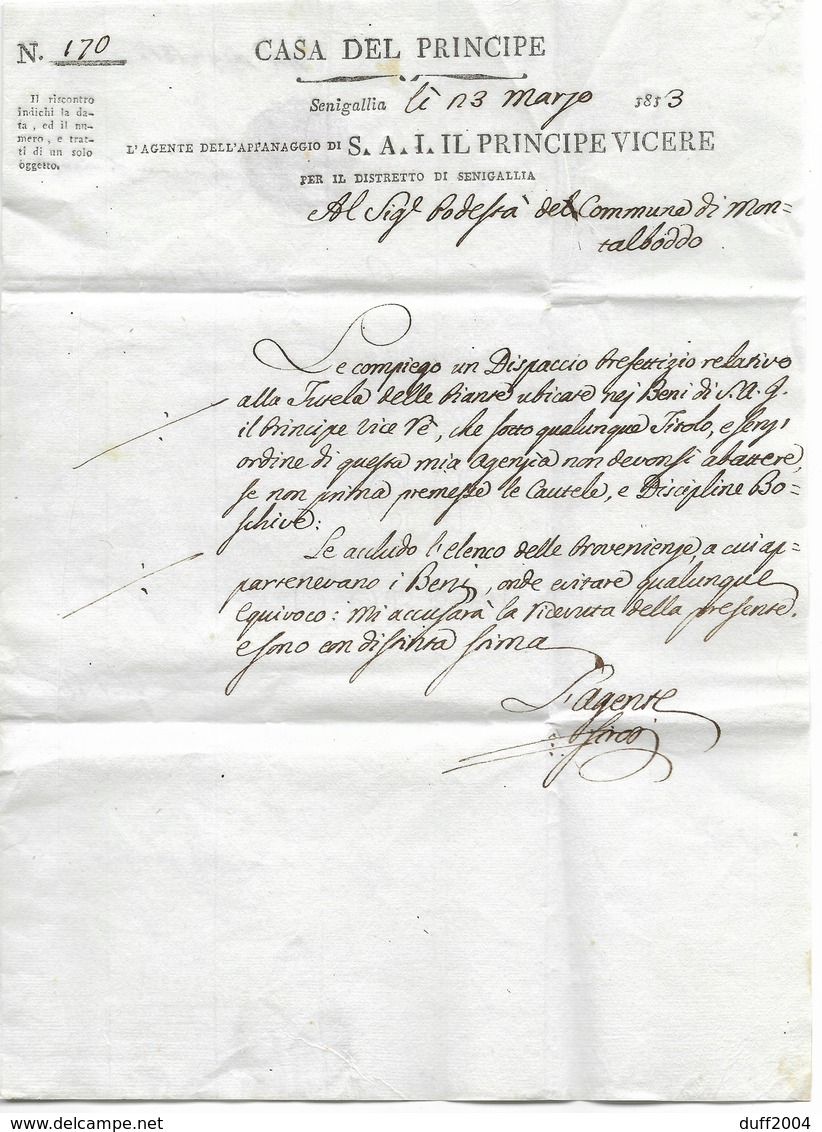 N. 170
CASA DEL PRINCIPE
Il riscontro
indichi la da-
ta, ed il nu-
mero, e trat-
ti di un solo
oggetto.
Senigallia li 23 Marzo 1813
L'AGENTE DELL'APPANAGGIO DI S. A. I. IL PRINCIPE VICERE
PER IL DISTRETTO DI SENIGALLIA
Al Sigr Podestà del Commune di Mon=
talboddo
Le compiego un Dispaccio Prefettizio relativo
alla Tutela delle Piante ubicate nej Beni di S. A. I.
il Principe Vice Rè, che sotto qualunque Titolo, e senz'
ordine di questa mia Agenzia non devonsi abattere,
se non prima premesse le Cautele, e Discipline Bo=
schive:
Le accludo l'elenco delle Provenienze, a cui ap=
partenevano i Beni, onde evitare qualunque
equivoco: Mi accuserà la ricevuta della presente.
e sono con distinta stima
L'Agente
duff2004